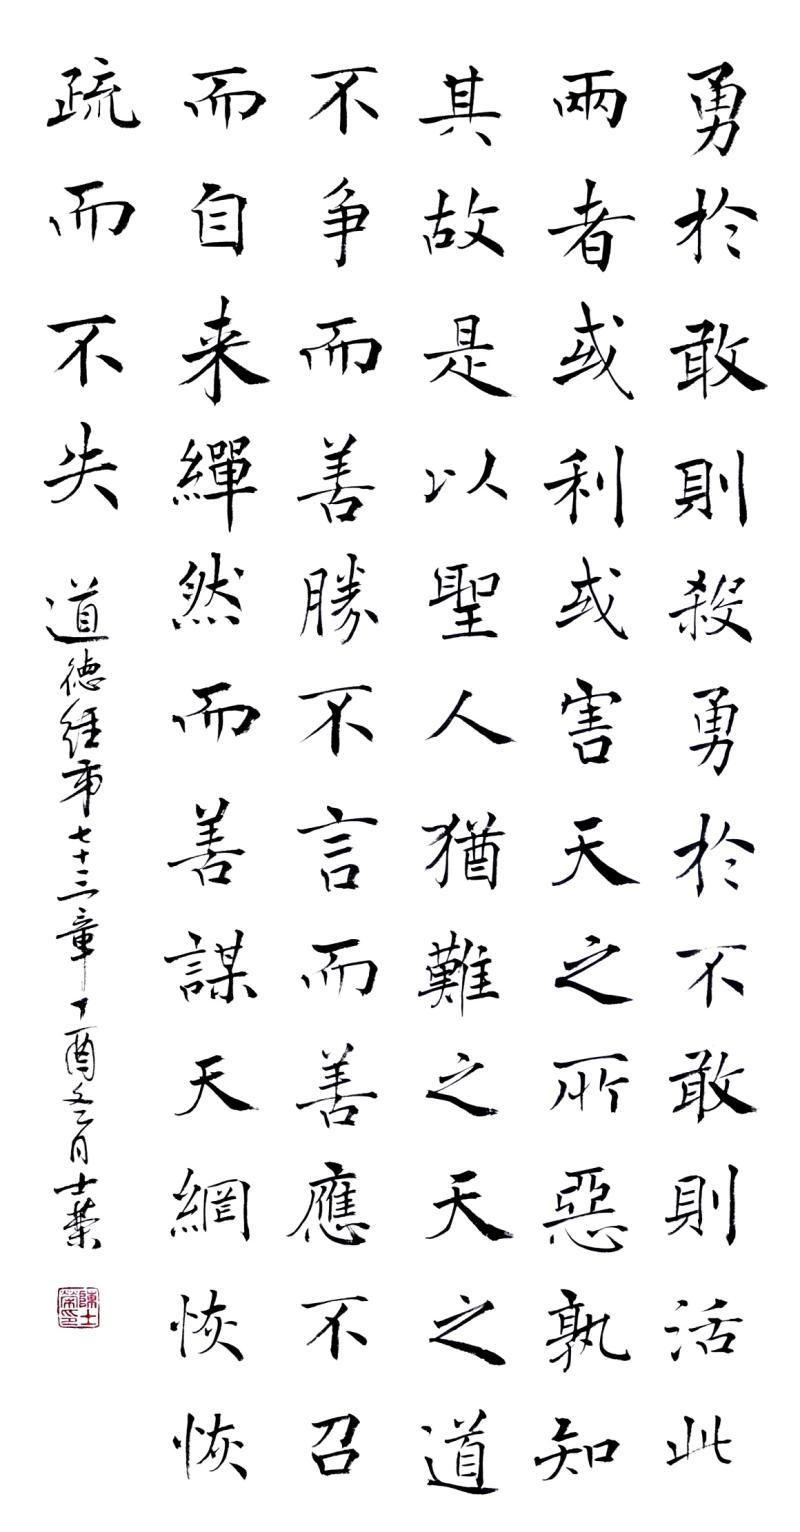 勇於敢則殺勇於不敢則活此
兩者或利或害天之所惡孰知
其故是以聖人猶難之天之道
不争而善勝不言而善應不召
而自来繟然而善謀天網恢恢
疏而不失
道德經第七十三章丁酉冬月士榮
陳士榮印